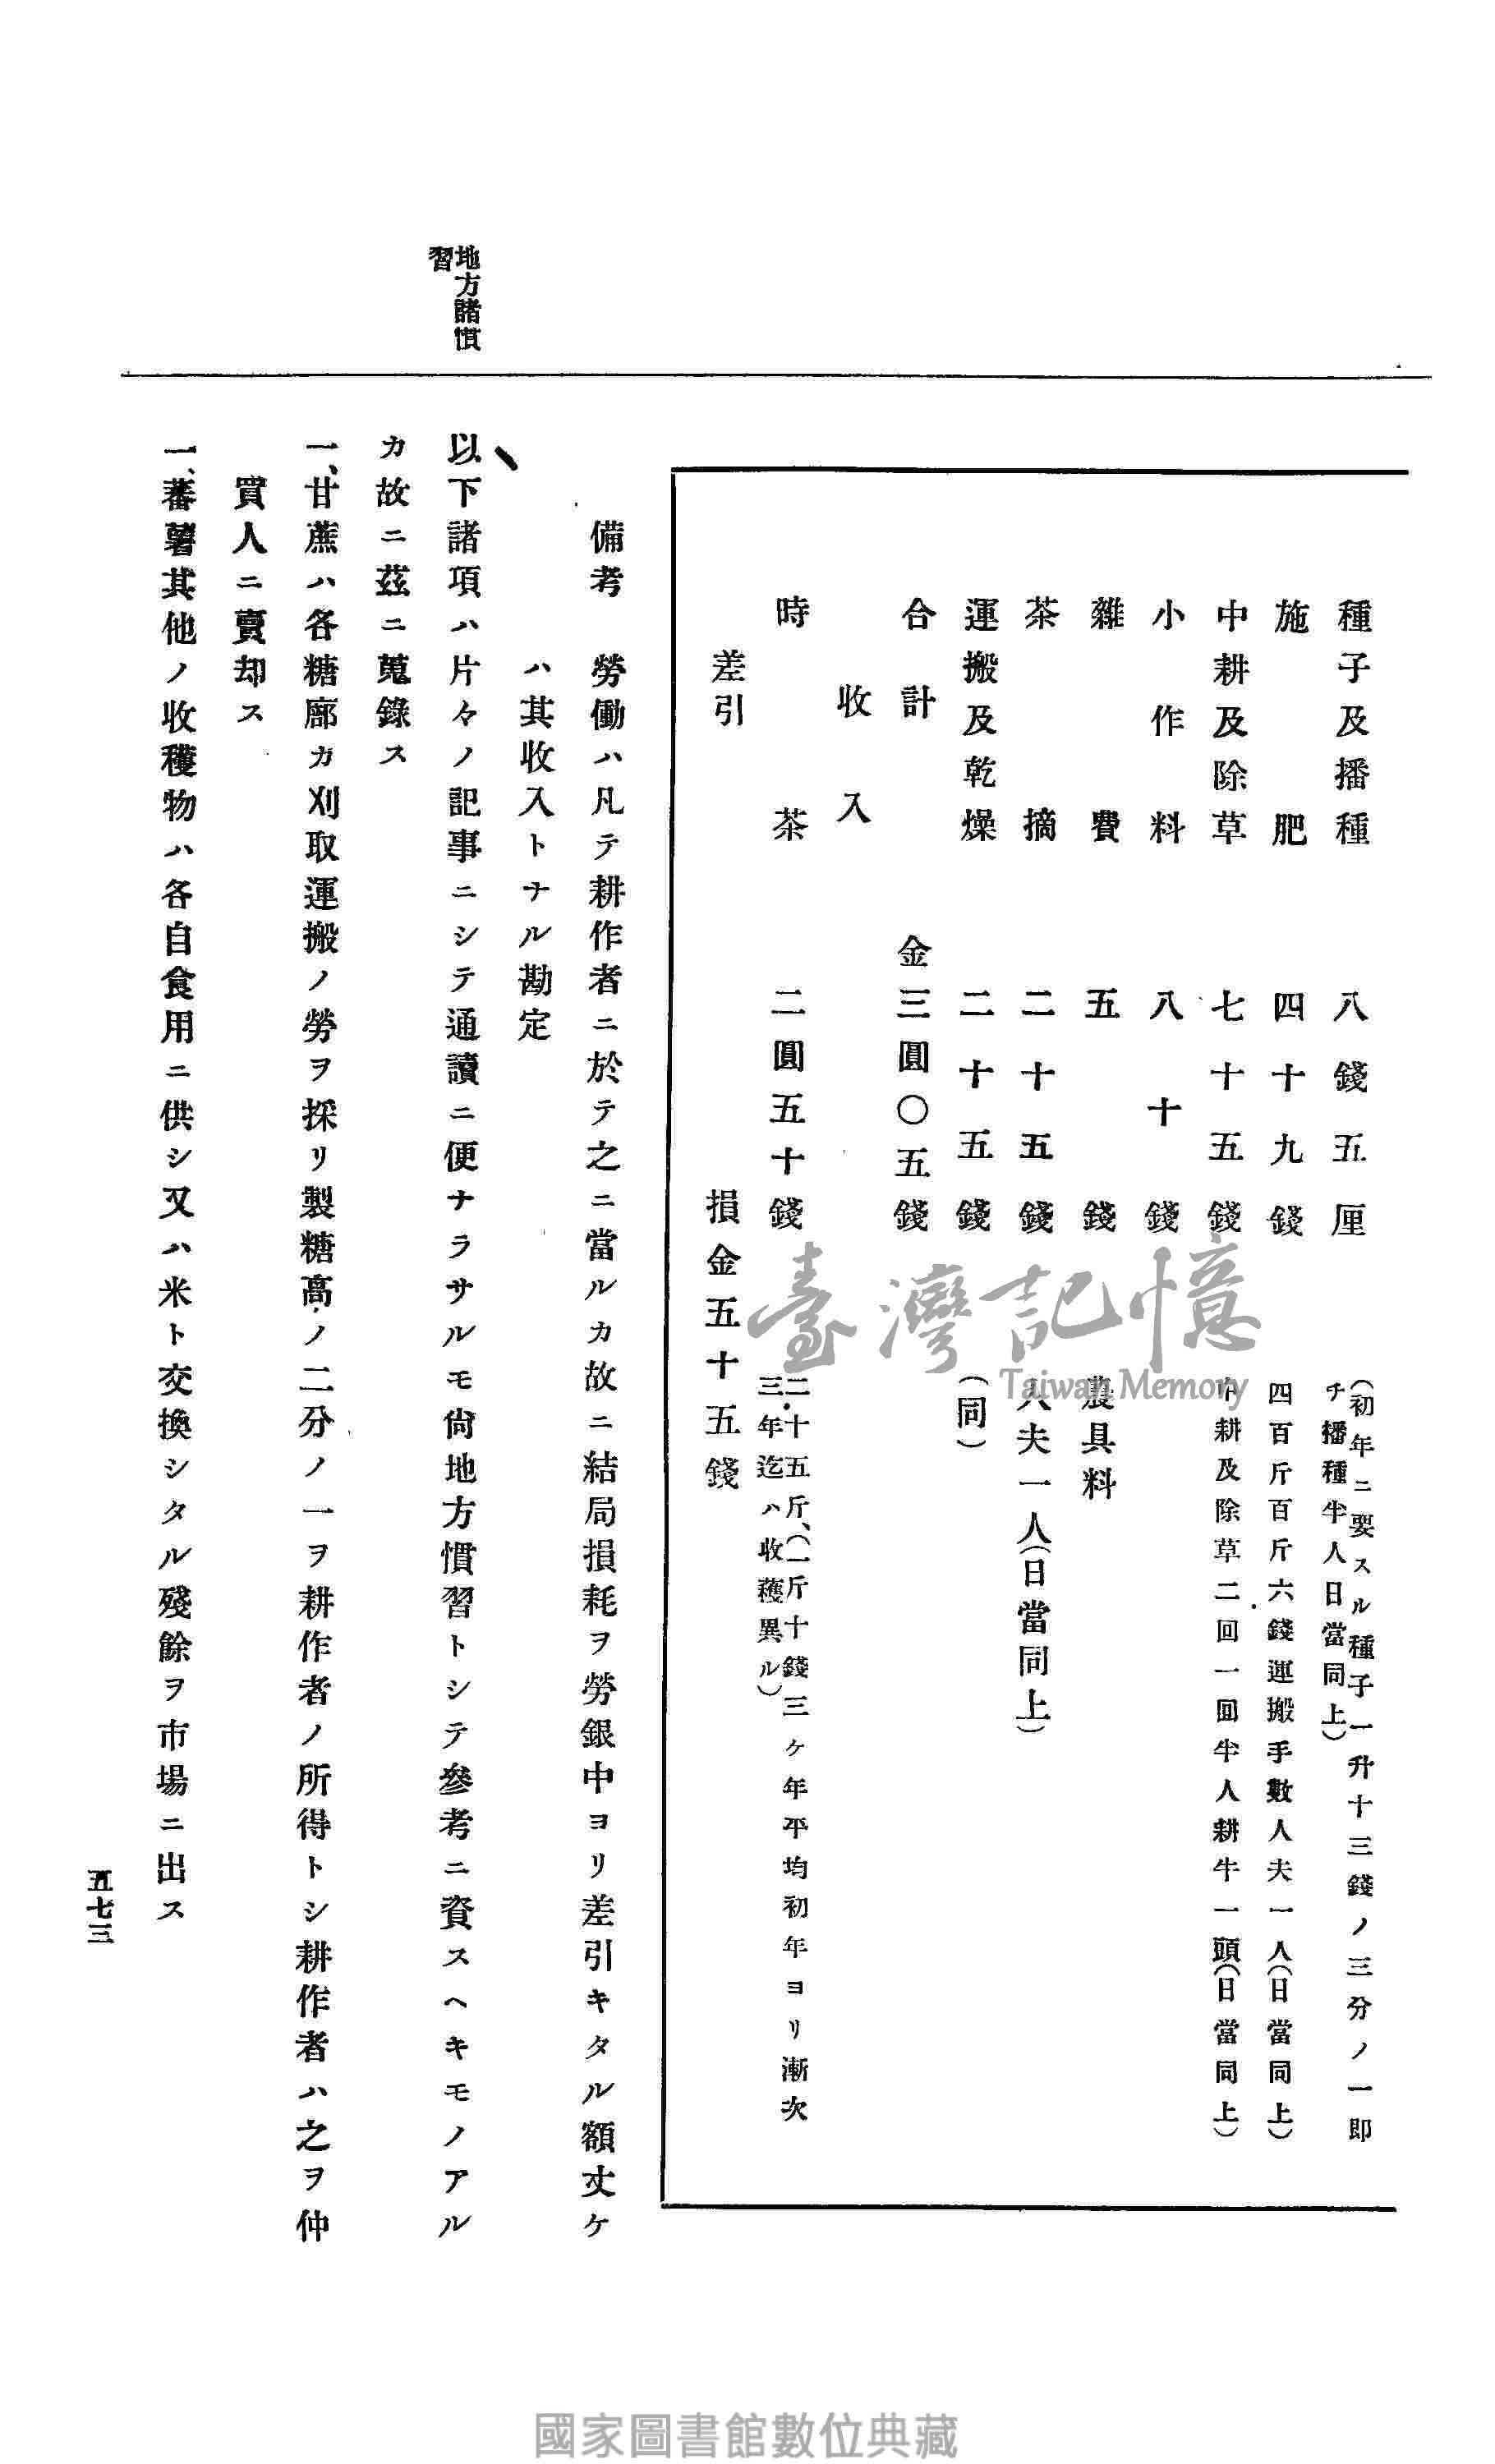 地方諸慣
習
種子及播種 八錢五厘 (初年ニ要スル種子一升十三錢ノ三分ノ一即
チ播種半人日當同上)
施肥 四十九錢 四百斤百斤六錢運搬手數人夫一人(日當同上)
中耕及除草 七十五錢 中耕及除草二回一回半人耕牛一頭(日當同上)
小作料 八十錢
雜費 五錢 農具料
茶摘 二十五錢 人夫一人(日當同上)
運搬及乾燥 二十五錢 (同)
合計 金三圓〇五錢
收入
時茶 二圓五十錢 二十五斤、(一斤十錢三ケ年平均初年ヨリ漸次
三年迄ハ收穫異ル)
差引 損金五十五錢
備考 勞働ハ凡テ耕作者ニ於テ之ニ當ルカ故ニ結局損耗ヲ勞銀中ヨリ差引キタル額丈ケ
ハ其收入トナル勘定
以下諸項ハ片々ノ記事ニシテ通讀ニ便ナラサルモ尙地方慣習トシテ參考ニ資スヘキモノアル
カ故ニ茲ニ蒐錄ス
一、甘蔗ハ各糖廍カ刈取運搬ノ勞ヲ採リ製糖高ノ二分ノ一ヲ耕作者ノ所得トシ耕作者ハ之ヲ仲
買人ニ賣却ス
一、蕃薯其他ノ收穫物ハ各自食用ニ供シ又ハ米ト交換シタル殘餘ヲ市場ニ出ス
五七三
臺灣記憶
Taiwan Memory
國家圖書館數位典藏